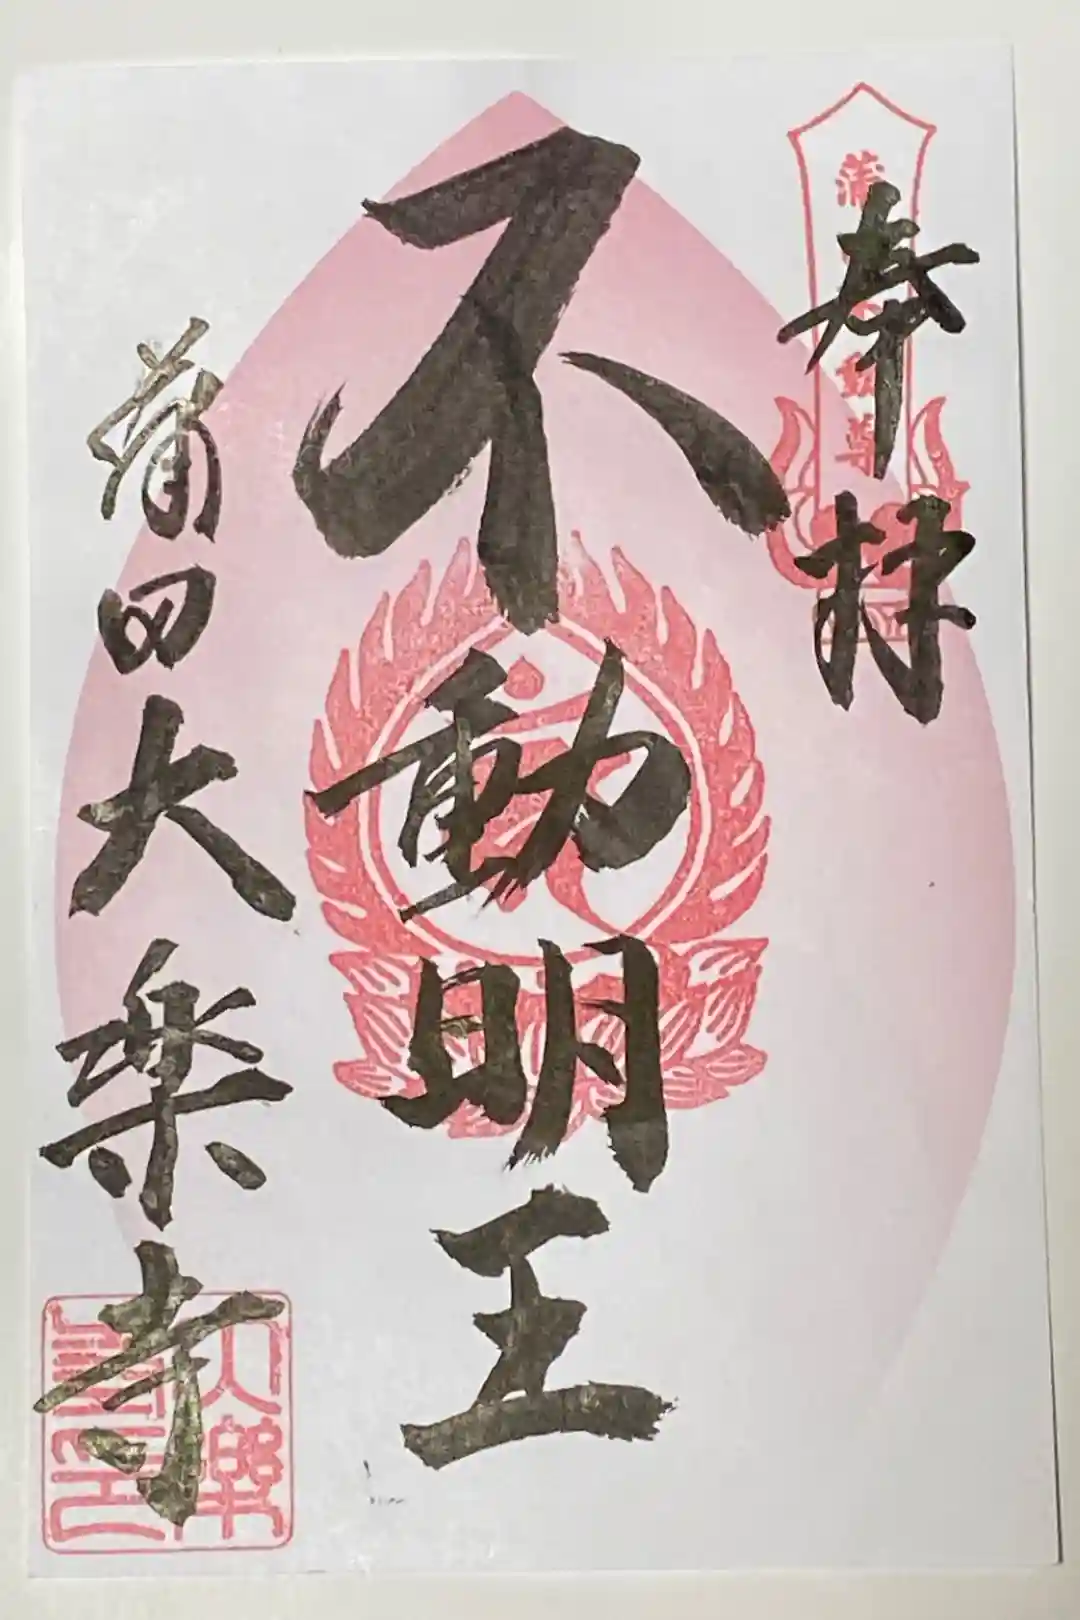 奉拝
不動明王
蒲田大楽寺